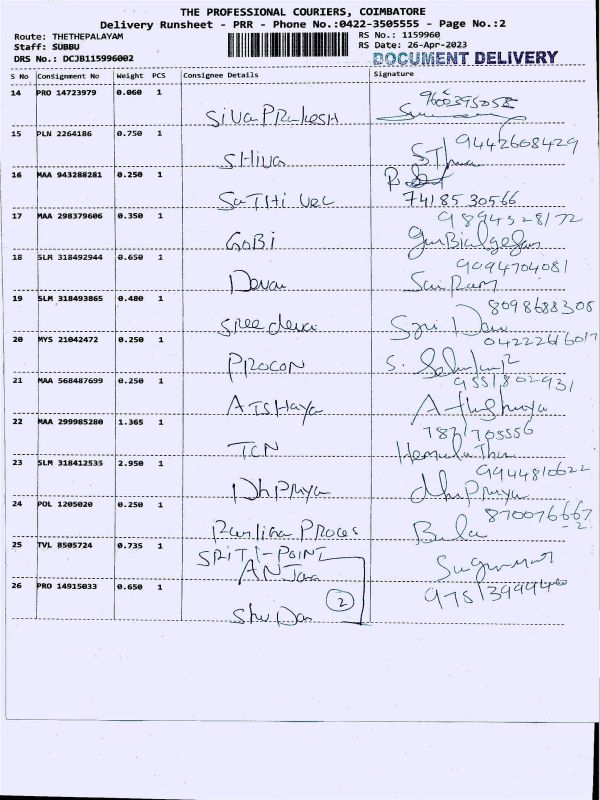 THE PROFESSIONAL COURIERS, COIMBATORE
Delivery Runsheet - PRR - Phone No.:0422-3505555 - Page No.:2
Route: THETHEPALAYAM RS No.: 1159960
Staff: SUBBU RS Date: 26-Apr-2023
DRS No.: DCJB115996002 DOCUMENT DELIVERY
S No Consignment No Weight PCS Consignee Details Signature
14 PRO 14723979 0.060 1
Siva Prakash
15 PLN 2264186 0.750 1 9442608429
SHiva
16 MAA 943288281 0.250 1
SaTHi Vel 74185 30566
17 MAA 298379606 0.350 1 9894328172
GOBi
18 SLM 318492944 0.650 1 9094704081
Deva Sai Ram
19 SLM 318493865 0.480 1 8098688308
Sree deva
20 MYS 21042472 0.250 1 04222616017
PROCON
21 MAA 568487699 0.250 1 9551802931
22 MAA 299985280 1.365 1
TCN
23 SLM 318412535 2.950 1 9944810622
Dhpriya
24 POL 1205020 0.250 1
Bala
25 TVL 8505724 0.735 1
26 PRO 14915033 0.650 1
2